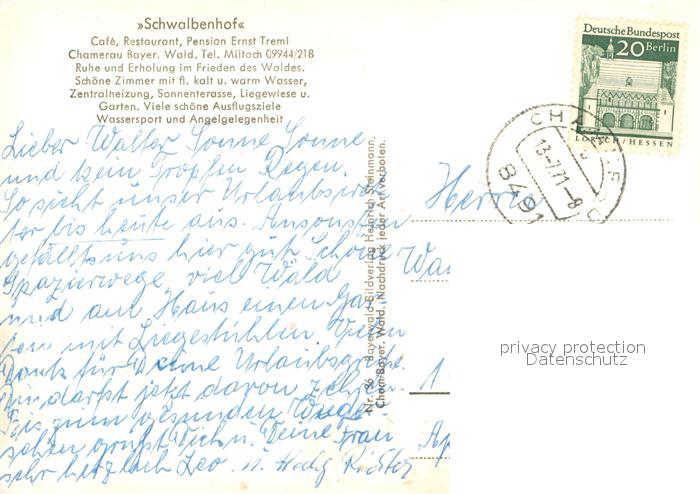 »Schwalbenhof«
Café, Restaurant, Pension Ernst Treml
Chamerau Bayer. Wald. Tel. Miltach 09944/218
Ruhe und Erholung im Frieden des Waldes.
Schöne Zimmer mit fl. kalt u. warm Wasser,
Zentralheizung, Sonnenterasse, Liegewiese u.
Garten. Viele schöne Ausflugsziele
Wassersport und Angelgelegenheit
Deutsche Bundespost
20 Berlin
LORSCH/HESSEN
CHAMERAU
13.-7.71.-8
8491
Lieber Walter Sonne Sonne
und kein Tropfen Regen.
So sieht unser Urlaubswet
ter bis heute aus. Ansonsten
gefällts uns hier gut Schöne
Spazierwege viel Wald
und am Haus einen Gar-
ten mit Liegestühlen Vielen
Dank für Deine Urlaubsgrüße.
Du darfst jetzt davon zehren.
Bis zum gesunden Wieder-
sehen grüßt Dich u. Deine Frau
sehr herzlich Leo u. Hedy Richter
Nr. 36 Bayerwald-Bildverlag Heinrich Steinmann,
Cham/Bayer. Wald. (Nachdruck jeder Art verboten.
Herrn
Wa
1
Ap
privacy protection
Datenschutz